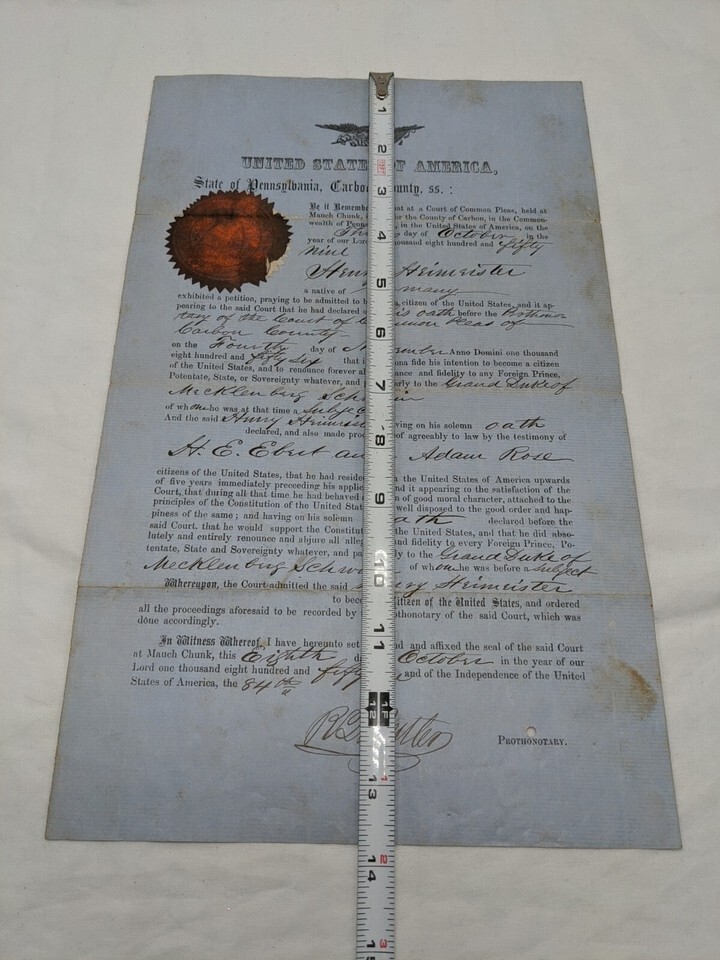 UNITED STATES OF AMERICA,
State of Pennsylvania, Carbon County, ss. :
Be it Remembered that at a Court of Common Pleas, held at
Mauch Chunk, for the County of Carbon, in the Common-
wealth of Pennsylvania, in the United States of America, on the
day of October in the
year of our Lord thousand eight hundred and fifty
nine
Henry Heimeister
a native of Germany
exhibited a petition, praying to be admitted to be a citizen of the United States, and it ap-
pearing to the said Court that he had declared on his oath before the Prothono-
tary of the Court of Common Pleas of
Carbon County
on the Fourth day of November Anno Domini one thousand
eight hundred and fifty six that it bona fide his intention to become a citizen
of the United States, and to renounce forever all allegiance and fidelity to any Foreign Prince,
Potentate, State, or Sovereignty whatever, and particularly to the Grand Duke of
Mecklenburg Schwerin
of whom he was at that time a Subject
And the said Henry Heimeister having on his solemn oath
declared, and also made proof agreeably to law by the testimony of
H. E. Ebert and Adam Rose
citizens of the United States, that he had resided in the United States of America upwards
of five years immediately preceeding his application and it appearing to the satisfaction of the
Court, that during all that time he had behaved as a man of good moral character, attached to the
principles of the Constitution of the United States well disposed to the good order and hap-
piness of the same ; and having on his solemn oath declared before the
said Court, that he would support the Constitution of the United States, and that he did abso-
lutely and entirely renounce and abjure all allegiance and fidelity to every Foreign Prince, Po-
tentate, State and Sovereignty whatever, and particularly to the Grand Duke of
Mecklenburg Schwerin of whom he was before a Subject
Whereupon, the Court admitted the said Henry Heimeister
to become a citizen of the United States, and ordered
all the proceedings aforesaid to be recorded by Prothonotary of the said Court, which was
done accordingly.
In Witness Whereof, I have hereunto set my hand and affixed the seal of the said Court
at Mauch Chunk, this Eighth day October in the year of our
Lord one thousand eight hundred and fifty and of the Independence of the United
States of America, the 84th
PROTHONOTARY.
1
2
3
4
5
6
7
8
9
10
11
12
1F
13
14
15
1
2
3